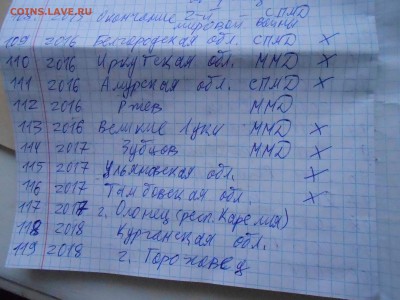 COINS.LAVE.RU
2015 Окончание 2-й мировой войны СПМД
109 2016 Белгородская обл. СПМД X
110 2016 Иркутская обл. ММД X
111 2016 Амурская обл. СПМД X
112 2016 Ржев ММД
113 2016 Великие Луки ММД X
114 2017 Зубцов ММД X
115 2017 Ульяновская обл. X
116 2017 Тамбовская обл. X
117 2017 г. Олонец (респ. Карелия)
118 2018 Курганская обл.
119 2018 г. Гороховец